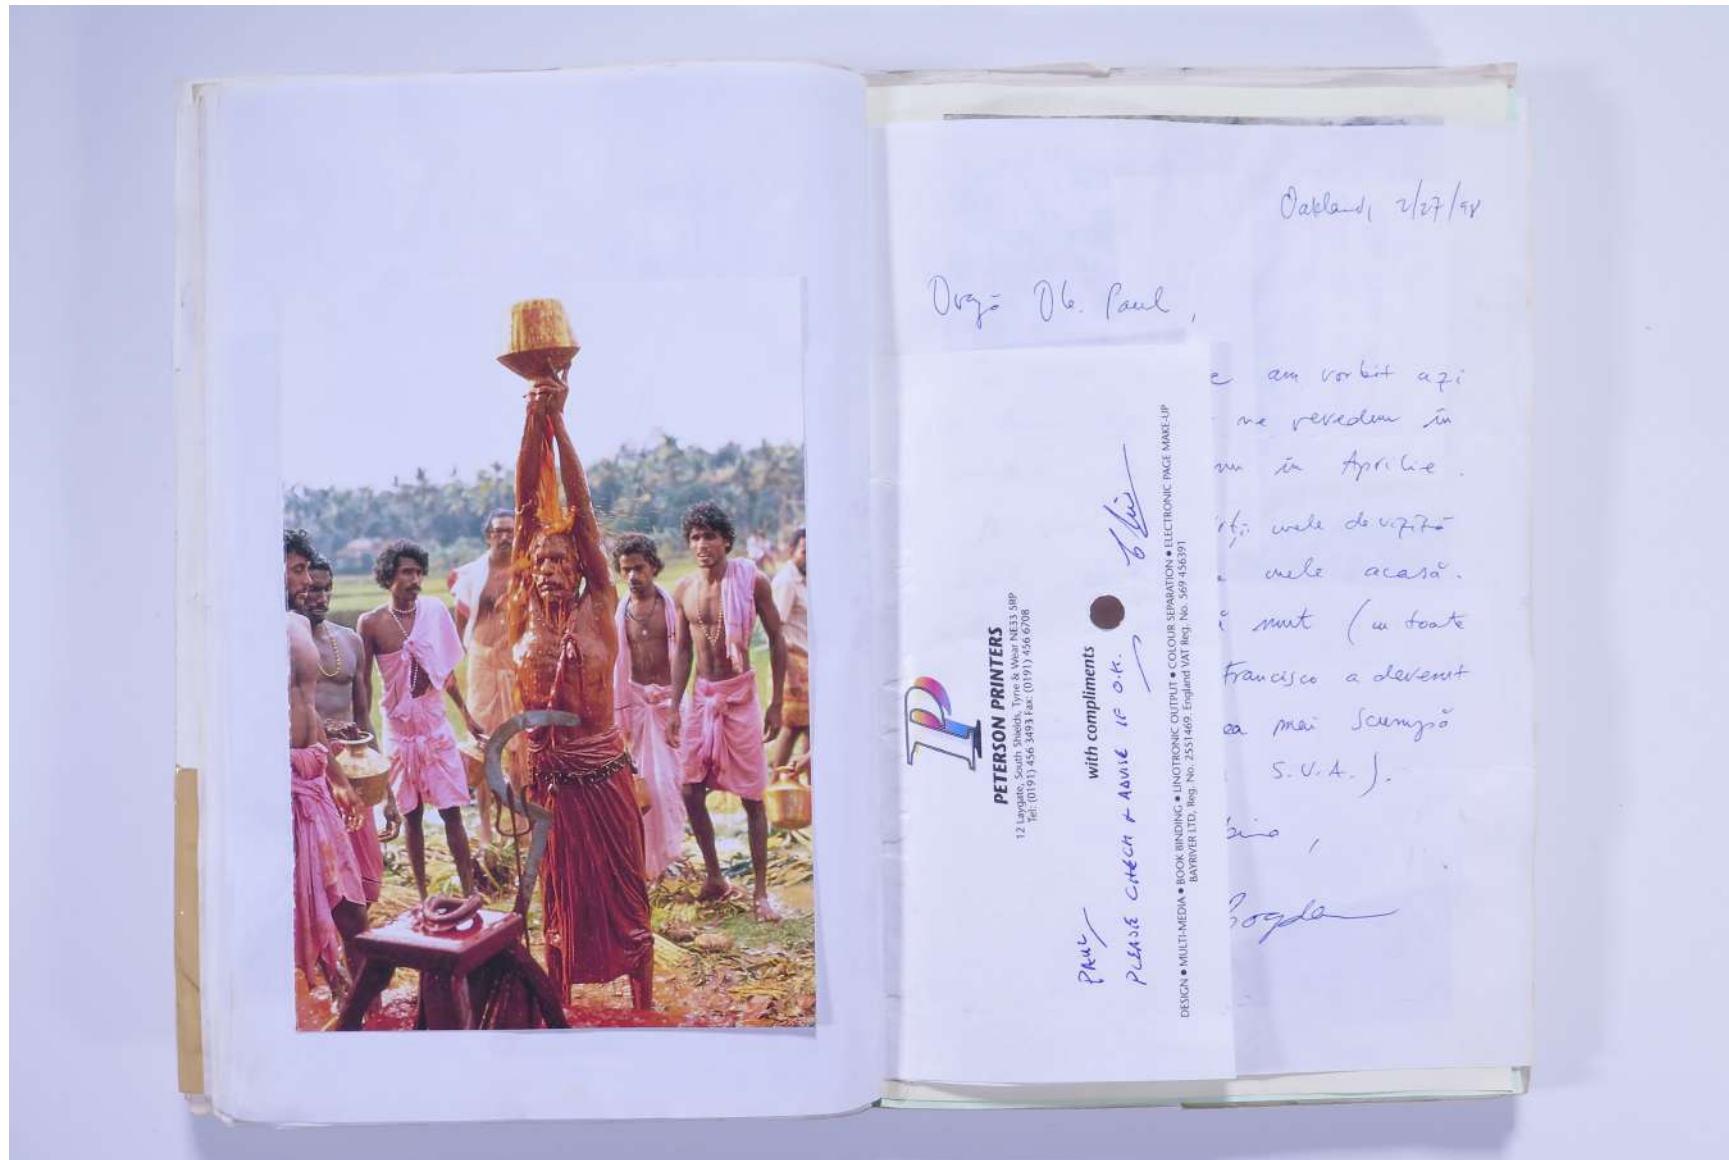 Oakland, 2/27/98
Dragă Dle. Paul,
am vorbit azi
ne revedem în
în Aprilie.
mele de vizită
mele acasă.
(cu toate
Francisco a devenit
mai scumpă
S.U.A.).
Bogdan
PETERSON PRINTERS
12 Laygate, South Shields, Tyne & Wear NE33 5RP
Tel: (0191) 456 3493 Fax: (0191) 456 6708
with compliments
PAUL
PLEASE CHECK + ADVISE IF O.K.
DESIGN • MULTI-MEDIA • BOOK BINDING • LINOTRONIC OUTPUT • COLOUR SEPARATION • ELECTRONIC PAGE MAKE-UP
BAYRIVER LTD, Reg. No. 2551469. England VAT Reg. No. 569 456391